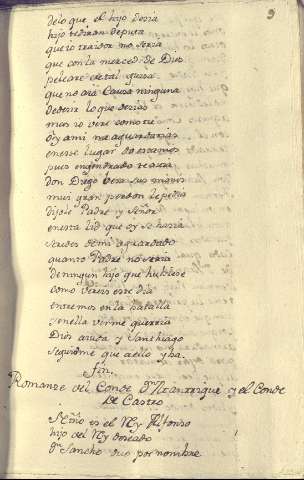 9
delo que el hijo deçia
hijo tediran deputa
que no traidor no seria
que con la merced de Dios
peleare de tal guisa
que no aia Causa ninguna
decirte lo que decias
mas io vere como tu
oy ami me aguardarias
eneste lugar do estamos
pues engendrado te avia
don Diego besa sus manos
mui gran perdon le pedia
dijole Padre y Señor
enesta lid que oy se haria
seredes demi aguardado
quanto Padre no seria
de ningun hijo que hubiese
como vereis este dia
entremos en la batalla
yenella ver me querria
Dios aiuda y Santhiago
seguidme que aello yba.
fin.
Romanze del Conde Dn Manrrique y el Conde
De Castro
el Rey Alfonso
hijo del Rey deseado
Dn Sancho que por nombre